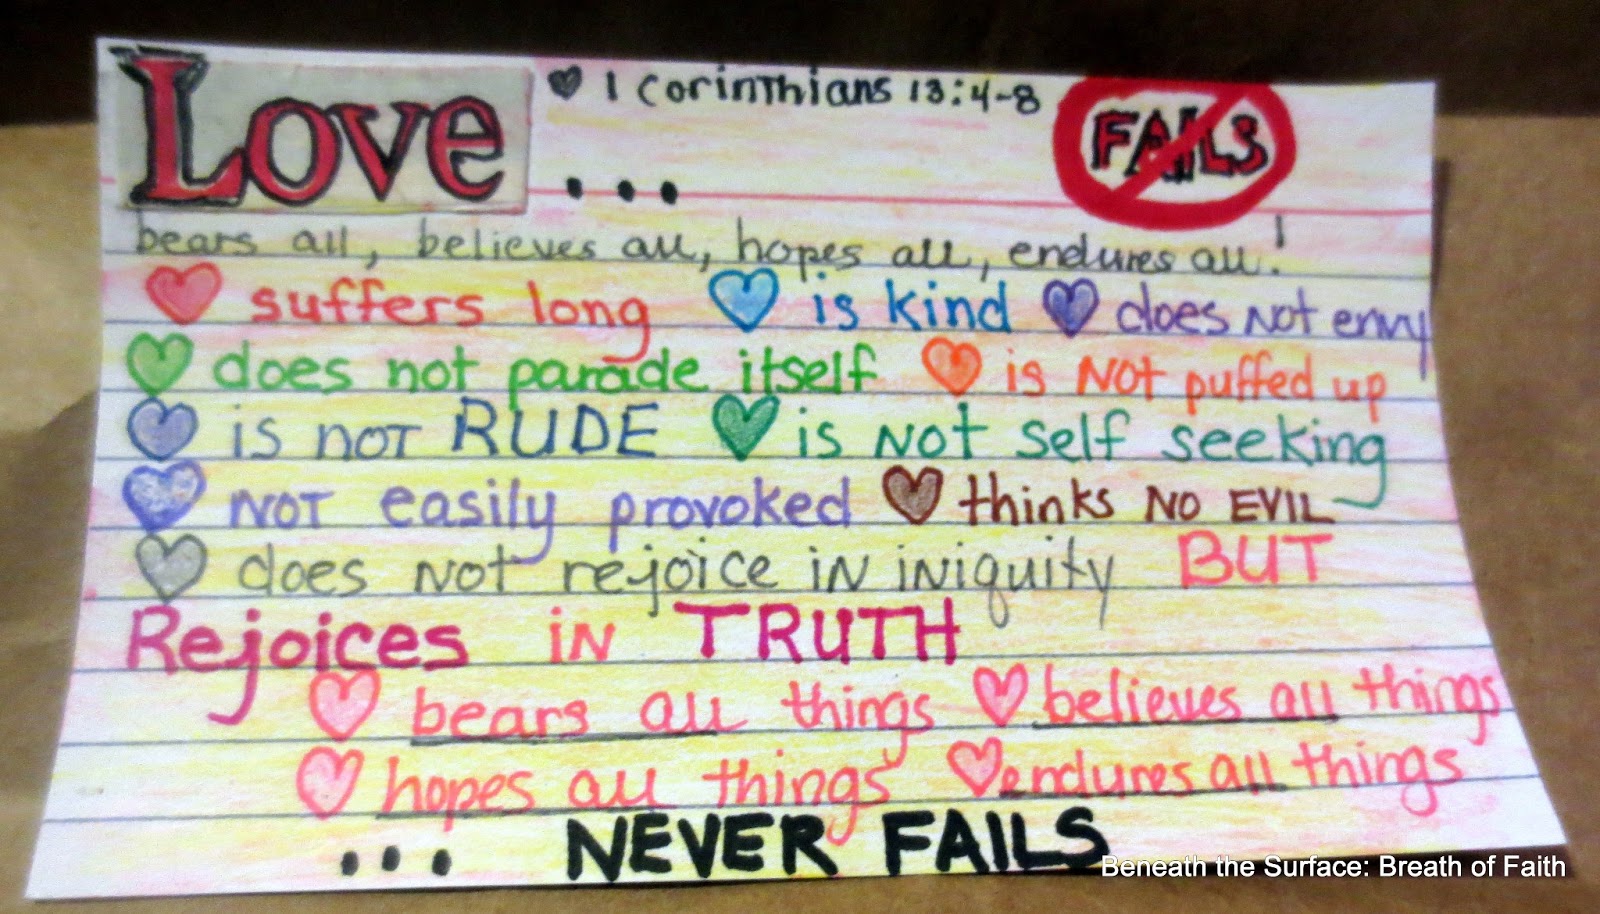 Love ... ♥ 1 Corinthians 13:4-8 FAILS
bears all, believes all, hopes all, endures all!
suffers long is kind does not envy
does not parade itself is NOT puffed up
is not RUDE is NOT self seeking
NOT easily provoked thinks NO EVIL
does NOT rejoice iN iNiquity BUT
Rejoices iN TRUTH
bears all things believes all things
hopes all things endures all things
... NEVER FAILS
Beneath the Surface: Breath of Faith